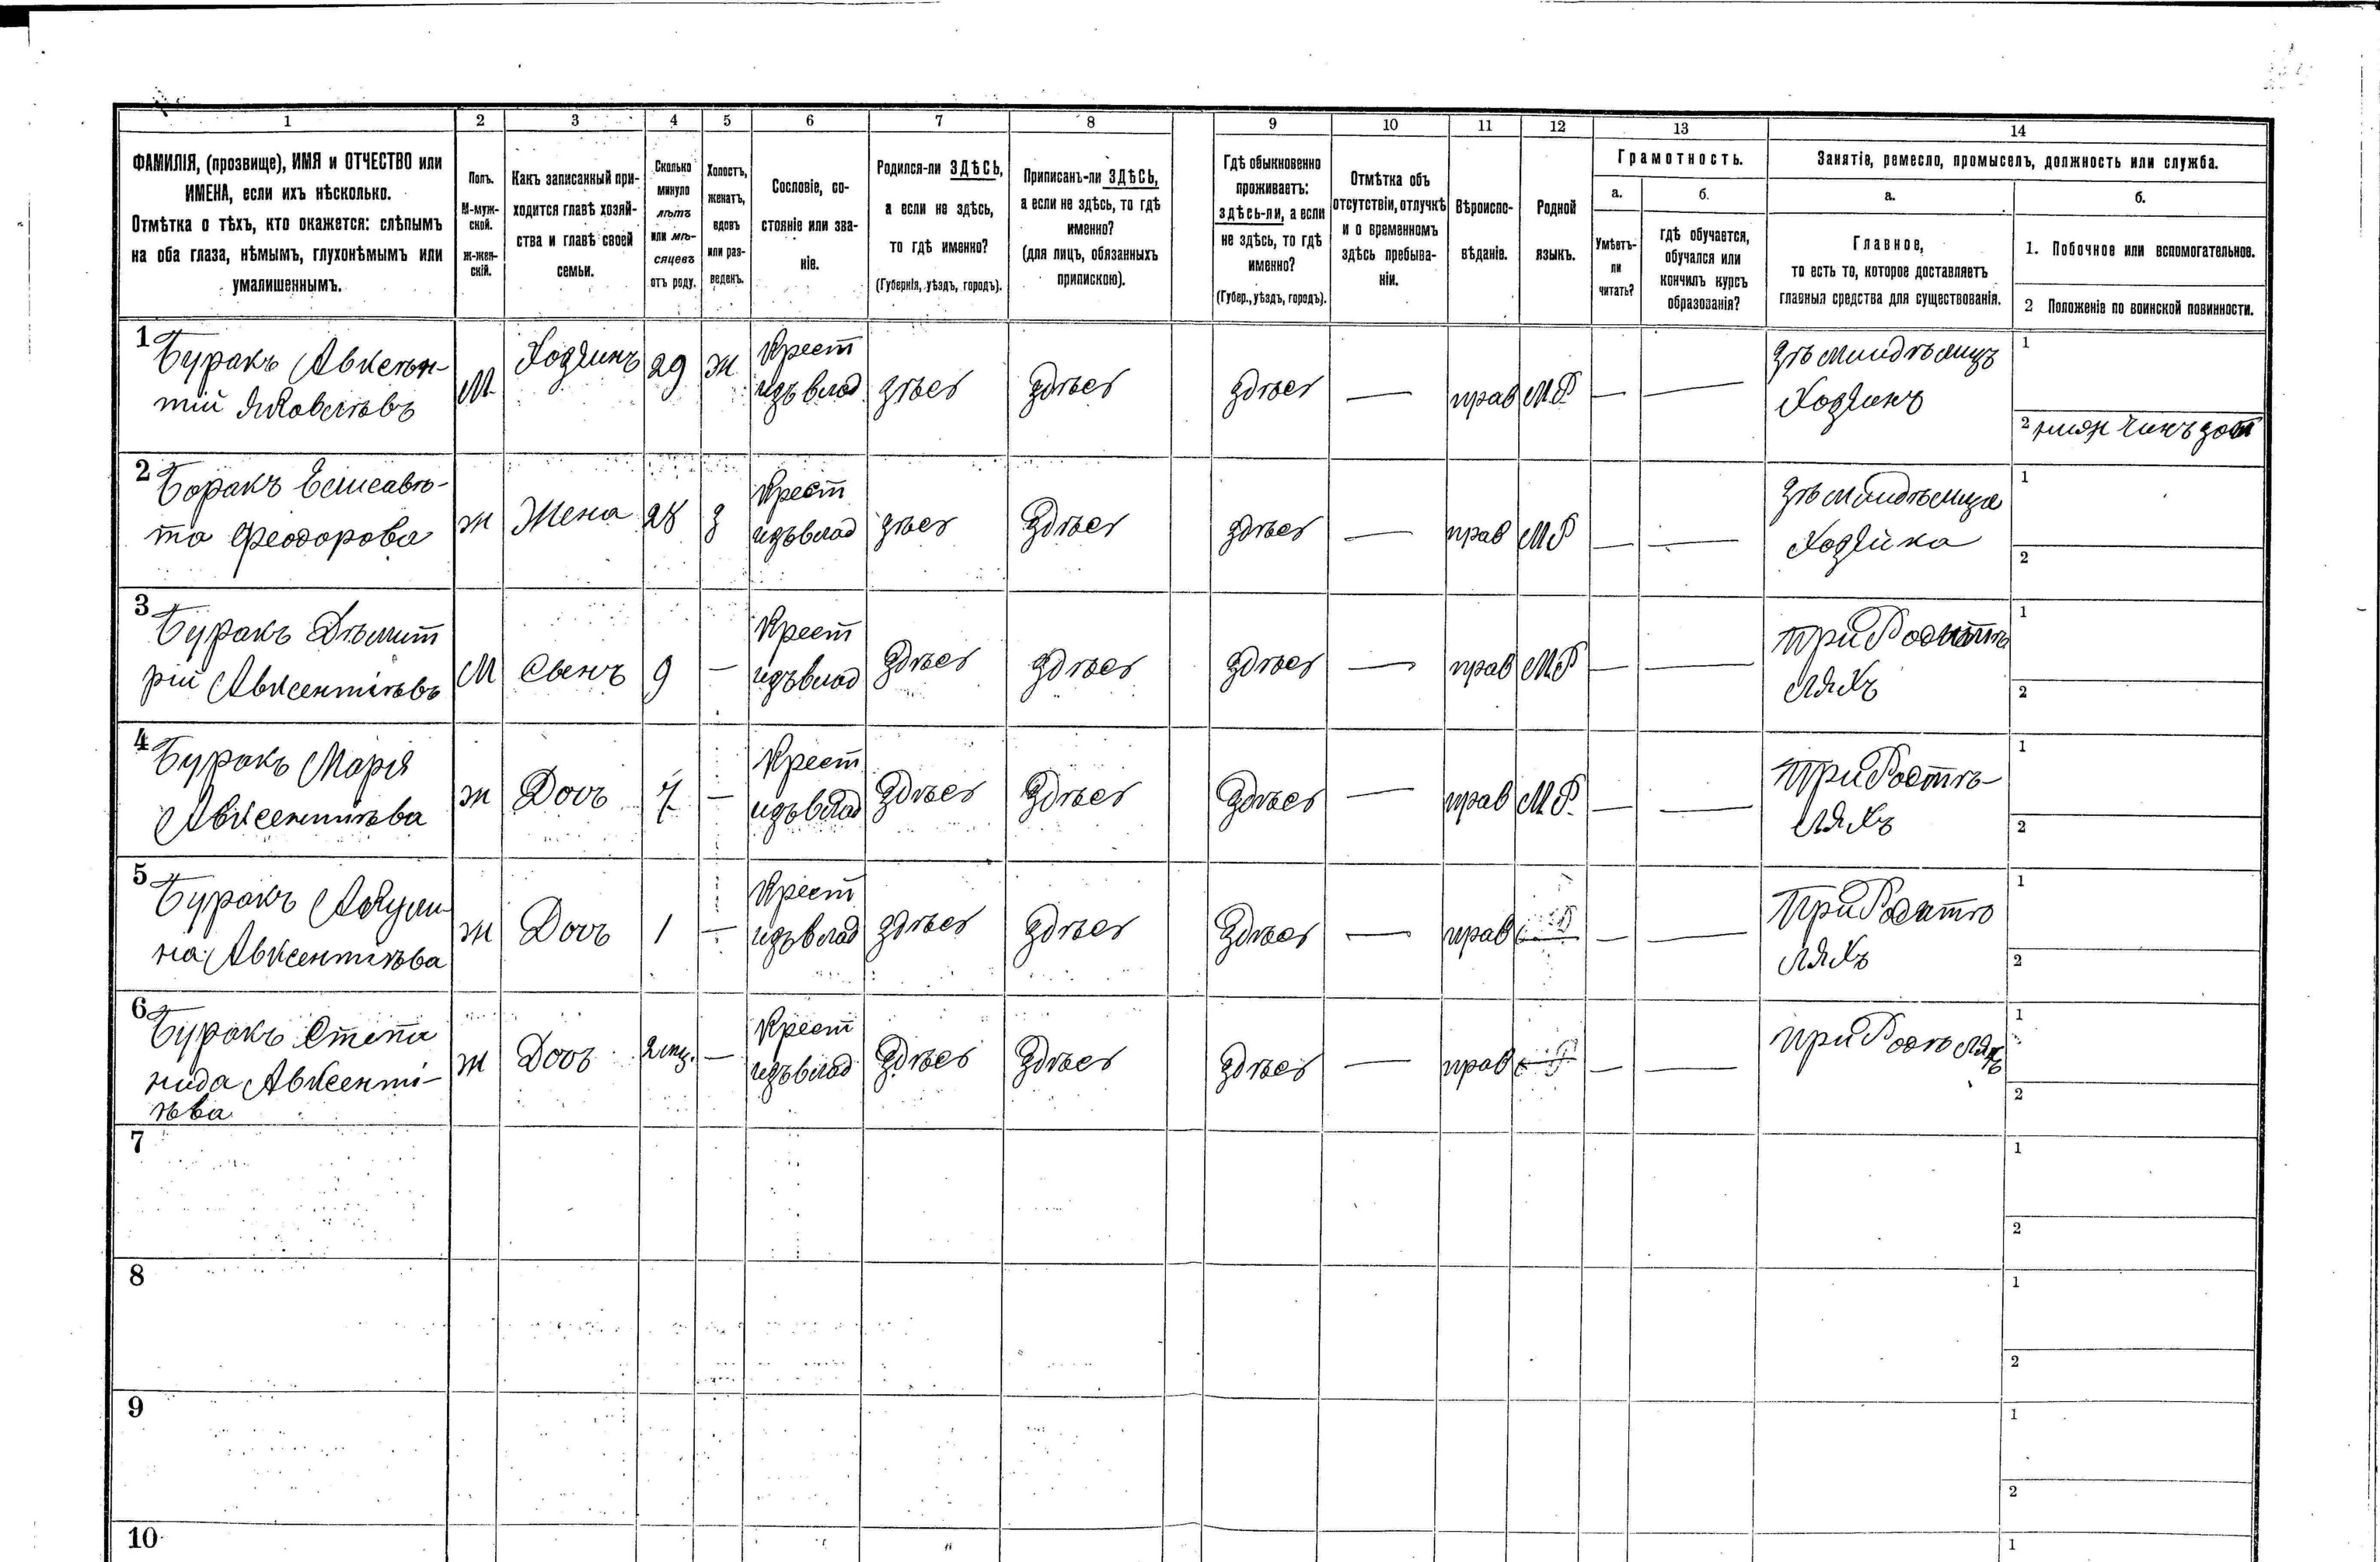 1 2 3 4 5 6 7 8 9 10 11 12 13 14
ФАМИЛІЯ, (прозвище), ИМЯ и ОТЧЕСТВО или
ИМЕНА, если ихъ нѣсколько.
Отмѣтка о тѣхъ, кто окажется: слѣпымъ
на оба глаза, нѣмымъ, глухонѣмымъ или
умалишеннымъ.
Полъ.
М-муж-
ской.
ж-жен-
скій.
Какъ записанный при-
ходится главѣ хозяй-
ства и главѣ своей
семьи.
Сколько
минуло
лѣтъ
или мѣ-
сяцевъ
отъ роду.
Холостъ,
женатъ,
вдовъ
или раз-
веденъ.
Сословіе, со-
стояніе или зва-
ніе.
Родился-ли ЗДѢСЬ,
а если не здѣсь,
то гдѣ именно?
(Губернія, уѣздъ, городъ).
Приписанъ-ли ЗДѢСЬ,
а если не здѣсь, то гдѣ
именно?
(для лицъ, обязанныхъ
припискою).
Гдѣ обыкновенно
проживаетъ:
здѣсь-ли, а если
не здѣсь, то гдѣ
именно?
(Губер., уѣздъ, городъ).
Отмѣтка объ
отсутствіи, отлучкѣ
и о временномъ
здѣсь пребыва-
ніи.
Вѣроиспо-
вѣданіе.
Родной
языкъ.
Грамотность.
а.
Умѣетъ-
ли
читать?
б.
гдѣ обучается,
обучался или
кончилъ курсъ
образованія?
Занятіе, ремесло, промыселъ, должность или служба.
а.
Главное,
то есть то, которое доставляетъ
главныя средства для существованія.
б.
1. Побочное или вспомогательное.
2 Положеніе по воинской повинности.
1 Буракъ Авксън-
тій Яковлѣвъ
М Хозяинъ 29 ж Крест
изъ влад зѣсь здѣсь здѣсь — прав М.Р — —
зѣмлидѣлицъ
Хозяинъ
1
2
2 Боракъ Елисавѣ-
та Феодорова
ж Жена 28 з Крест
изъ влад зѣсь здѣсь здѣсь — прав М Р — —
зѣмлидѣлица
Хозяйка
1
2
3 Буракъ Дъмит
рій Авксентіѣвъ
М Сынъ 9 — Крест
изъ влад здѣсь здѣсь здѣсь — прав М.Р — —
при Родытѣ
ляхъ
1
2
4 Буракъ Марія
Авксентіѣва
ж Доч 7 — Крест
изъ влад здѣсь здѣсь здѣсь — прав М.Р. — —
при Родтѣ-
ляхъ
1
2
5 Буракъ Акули-
на Авксентіѣва
ж Доч 1 — Крест
изъ влад здѣсь здѣсь здѣсь — прав — —
при Родитѣ
ляхъ
1
2
6 Буракъ Степа
нида Авксенті-
ѣва
ж Доч 2 мц. — Крест
изъ влад здѣсь здѣсь здѣсь — прав — —
при Родѣляхъ
1
2
7
1
2
8
1
2
9
1
2
10
1